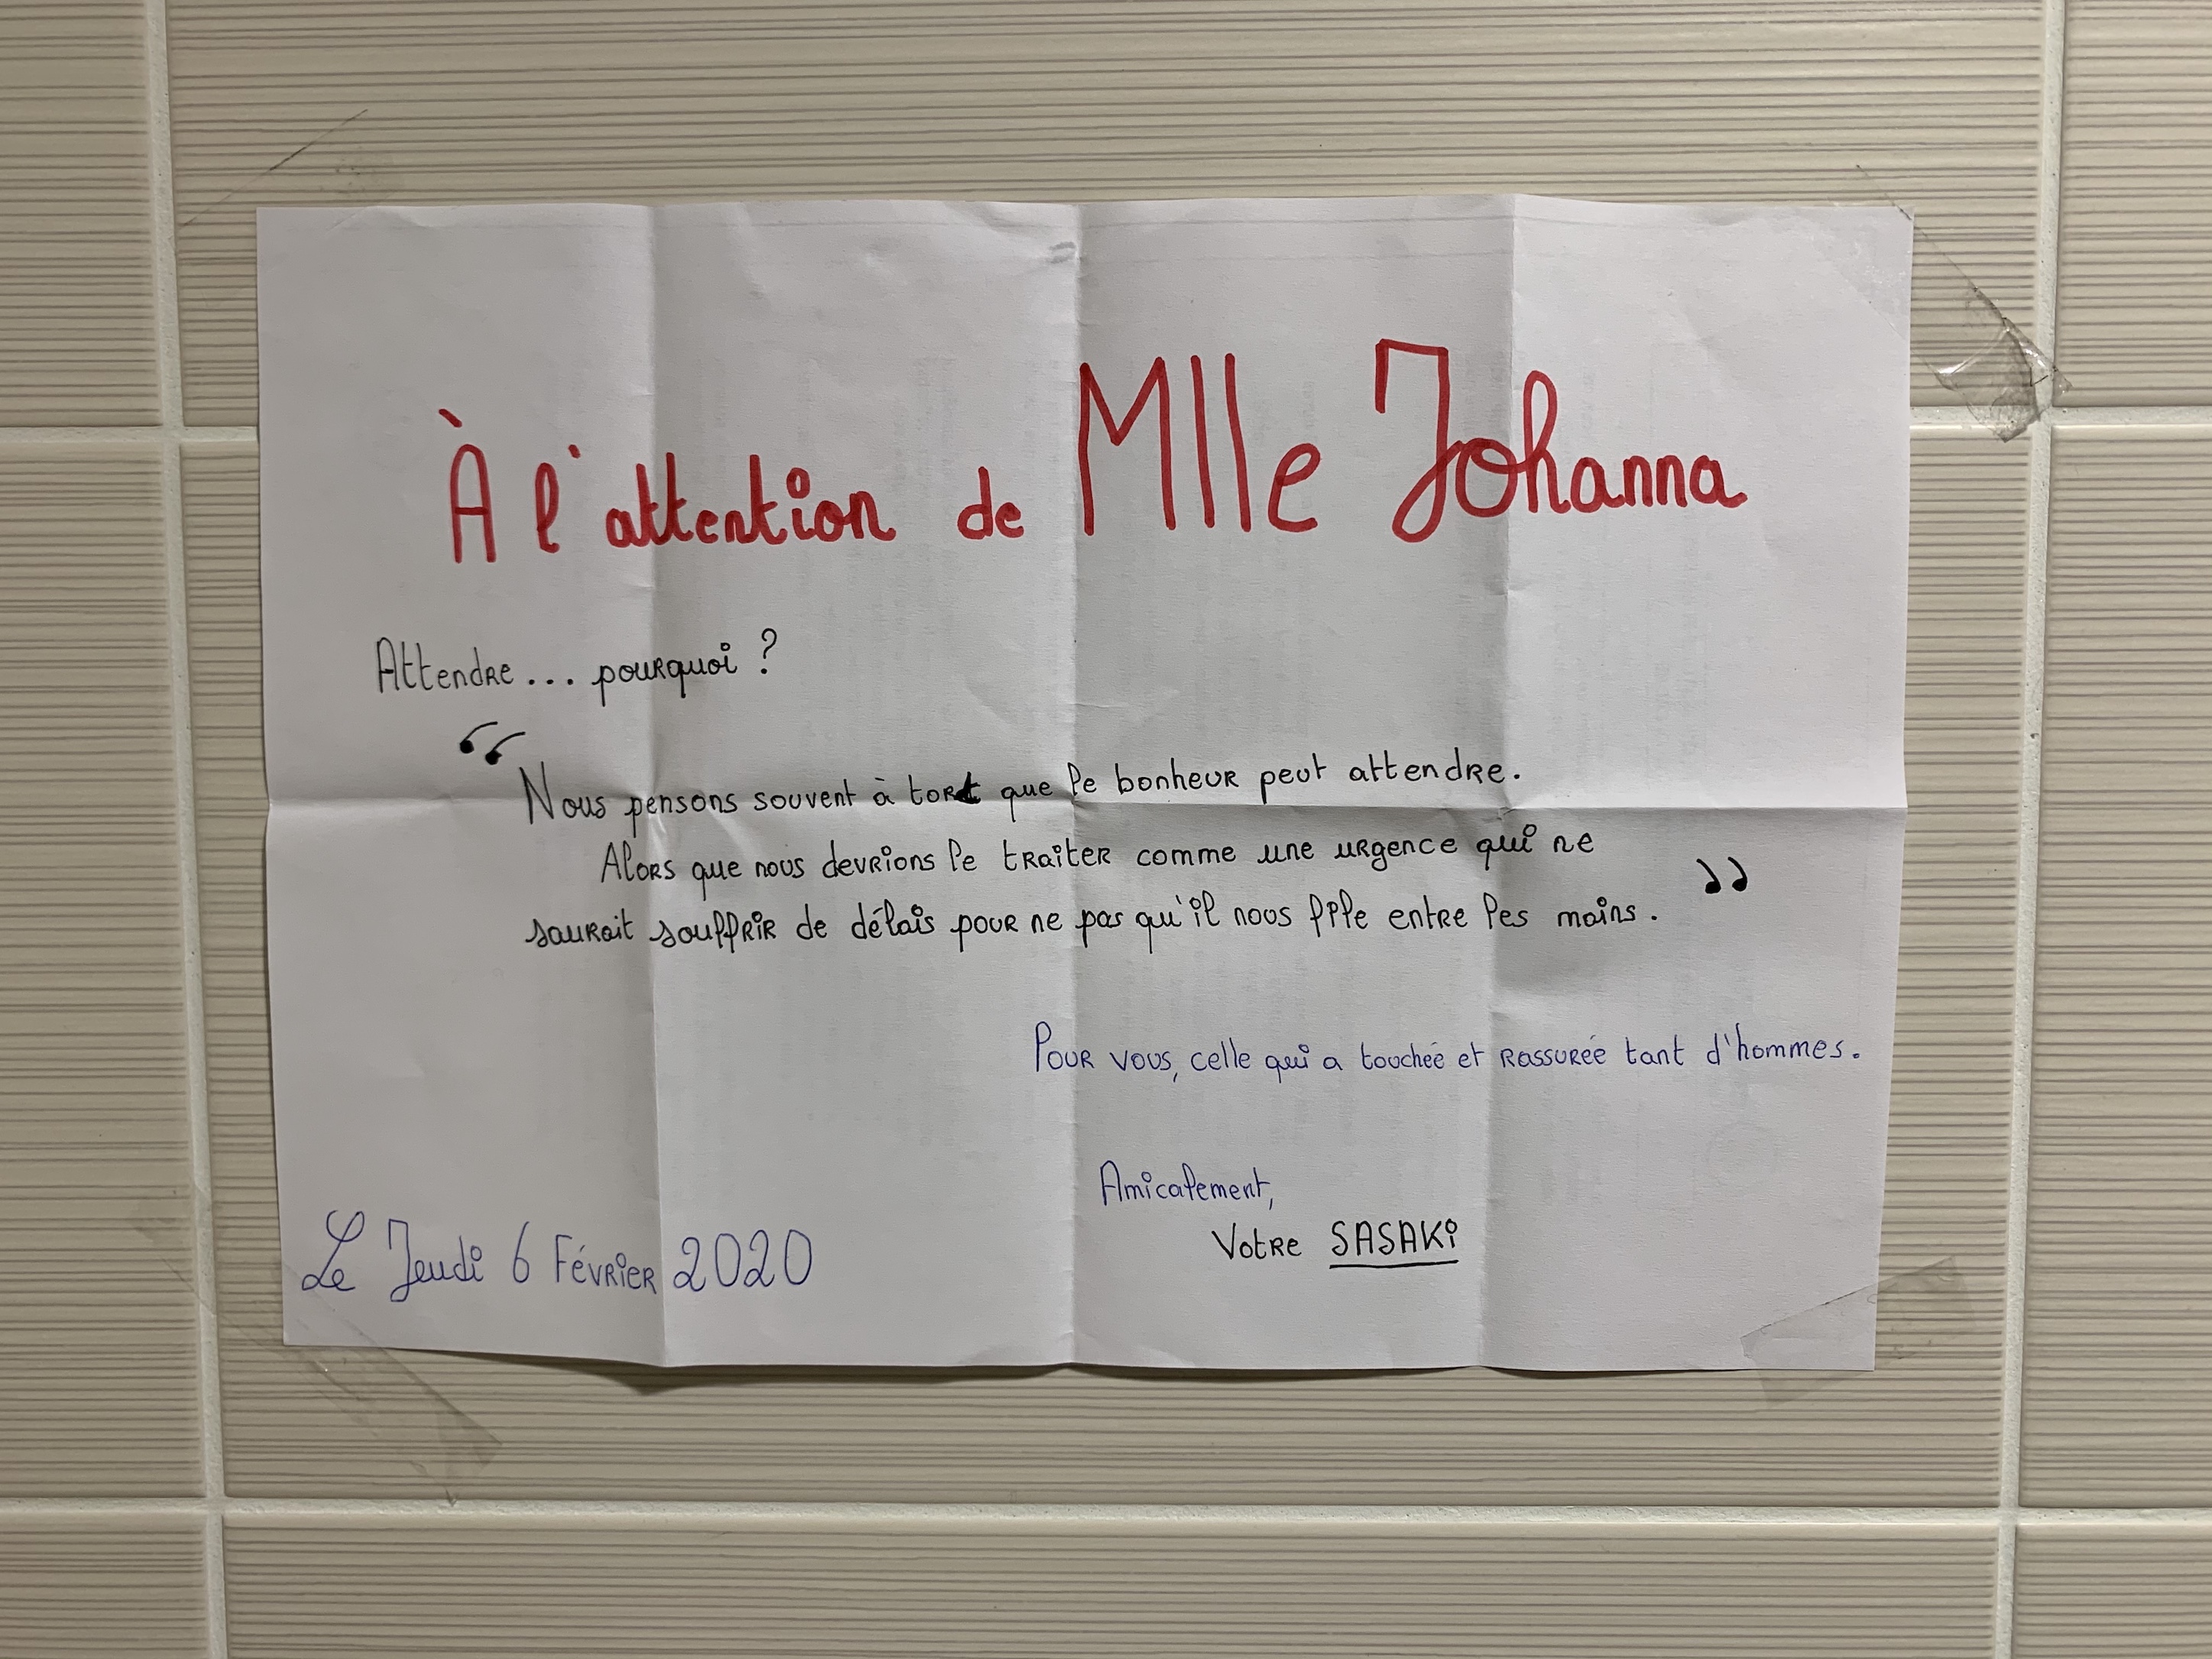 À l'attention de Mlle Johanna
Attendre... pourquoi ?
“ Nous pensons souvent à tort que le bonheur peut attendre.
Alors que nous devrions le traiter comme une urgence qui ne
saurait souffrir de délais pour ne pas qu'il nous file entre les mains. ”
Pour vous, celle qui a touchée et rassurée tant d'hommes.
Amicalement,
Votre SASAKi
Le Jeudi 6 Février 2020